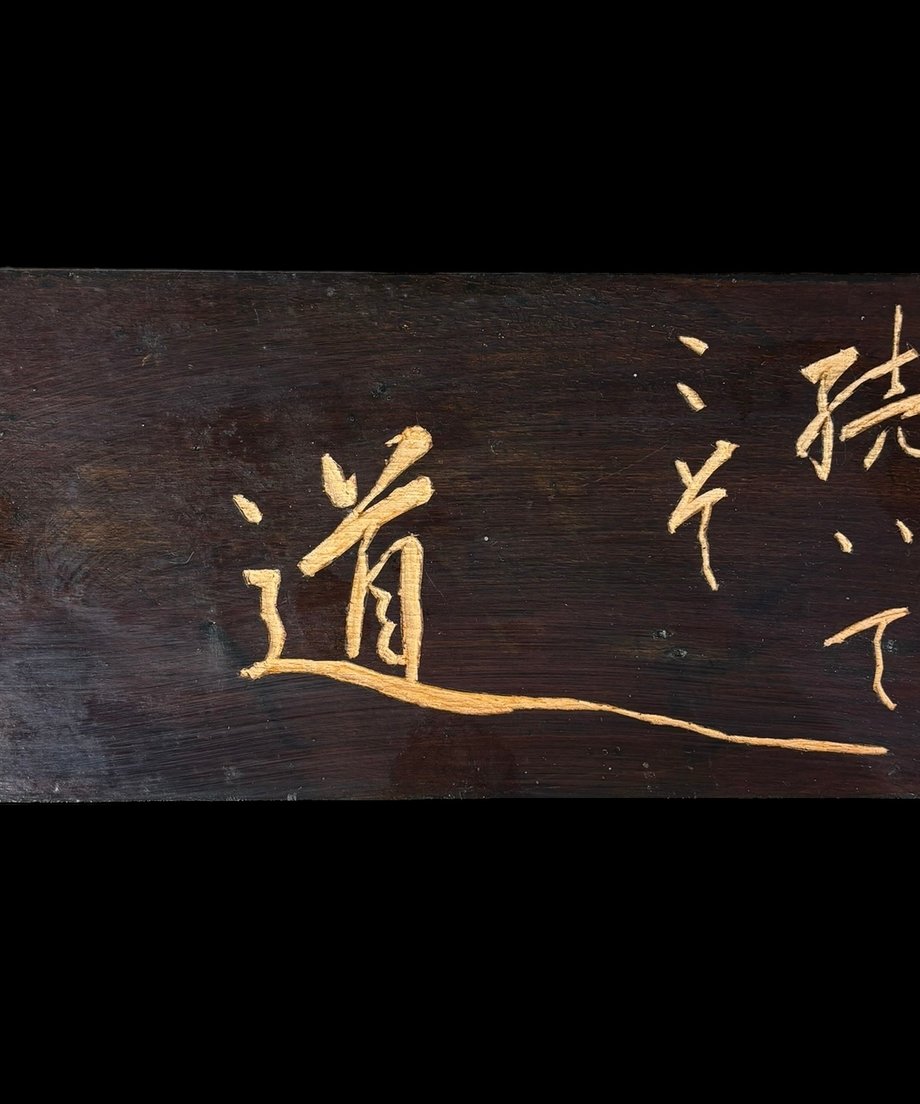 続いて
こそ
道